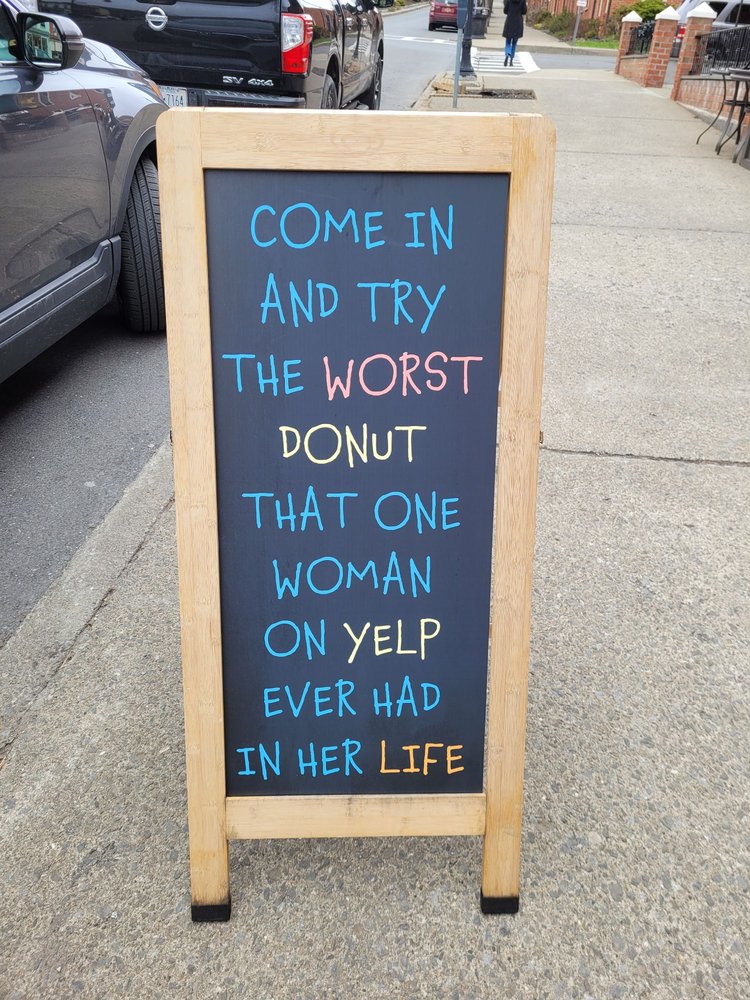 SV 4x4
7164
COME IN
AND TRY
THE WORST
DONUT
THAT ONE
WOMAN
ON YELP
EVER HAD
IN HER LIFE